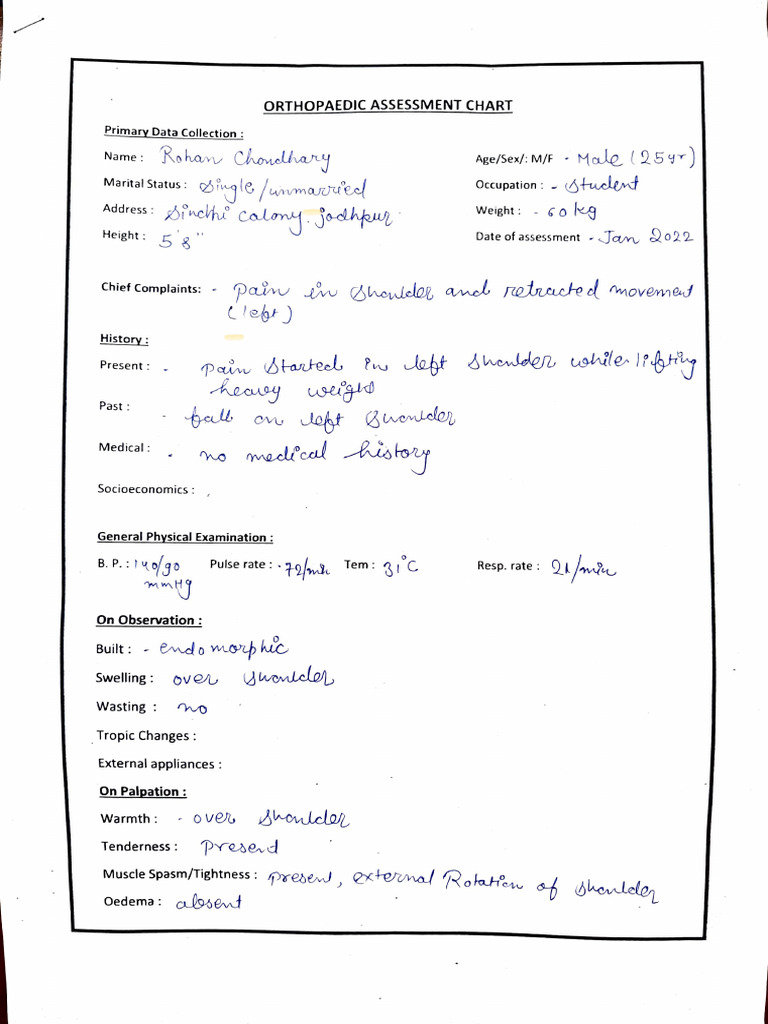 ORTHOPAEDIC ASSESSMENT CHART
Primary Data Collection :
Name : Rohan Chondhary Age/Sex/: M/F - Male (25 yr)
Marital Status : Single/unmarried Occupation : - Student
Address : Sindhi Calony. jodhpur Weight : - 60 kg
Height : 5'8" Date of assessment - Jan 2022
Chief Complaints: - Pain in Shoulder and retracted movement
(left)
History :
Present : - Pain Started in left Shoulder while lifting
heavy weight
Past : - fall on left Shoulder
Medical : - no medical history
Socioeconomics :
General Physical Examination :
B. P. : 140/90 Pulse rate : - 72/min Tem : 31°C Resp. rate : 21/min
mmHg
On Observation :
Built : - endomorphic
Swelling : over Shoulder
Wasting : no
Tropic Changes :
External appliances :
On Palpation :
Warmth : - over Shoulder
Tenderness : Present
Muscle Spasm/Tightness : present, external Rotation of Shoulder
Oedema : absent